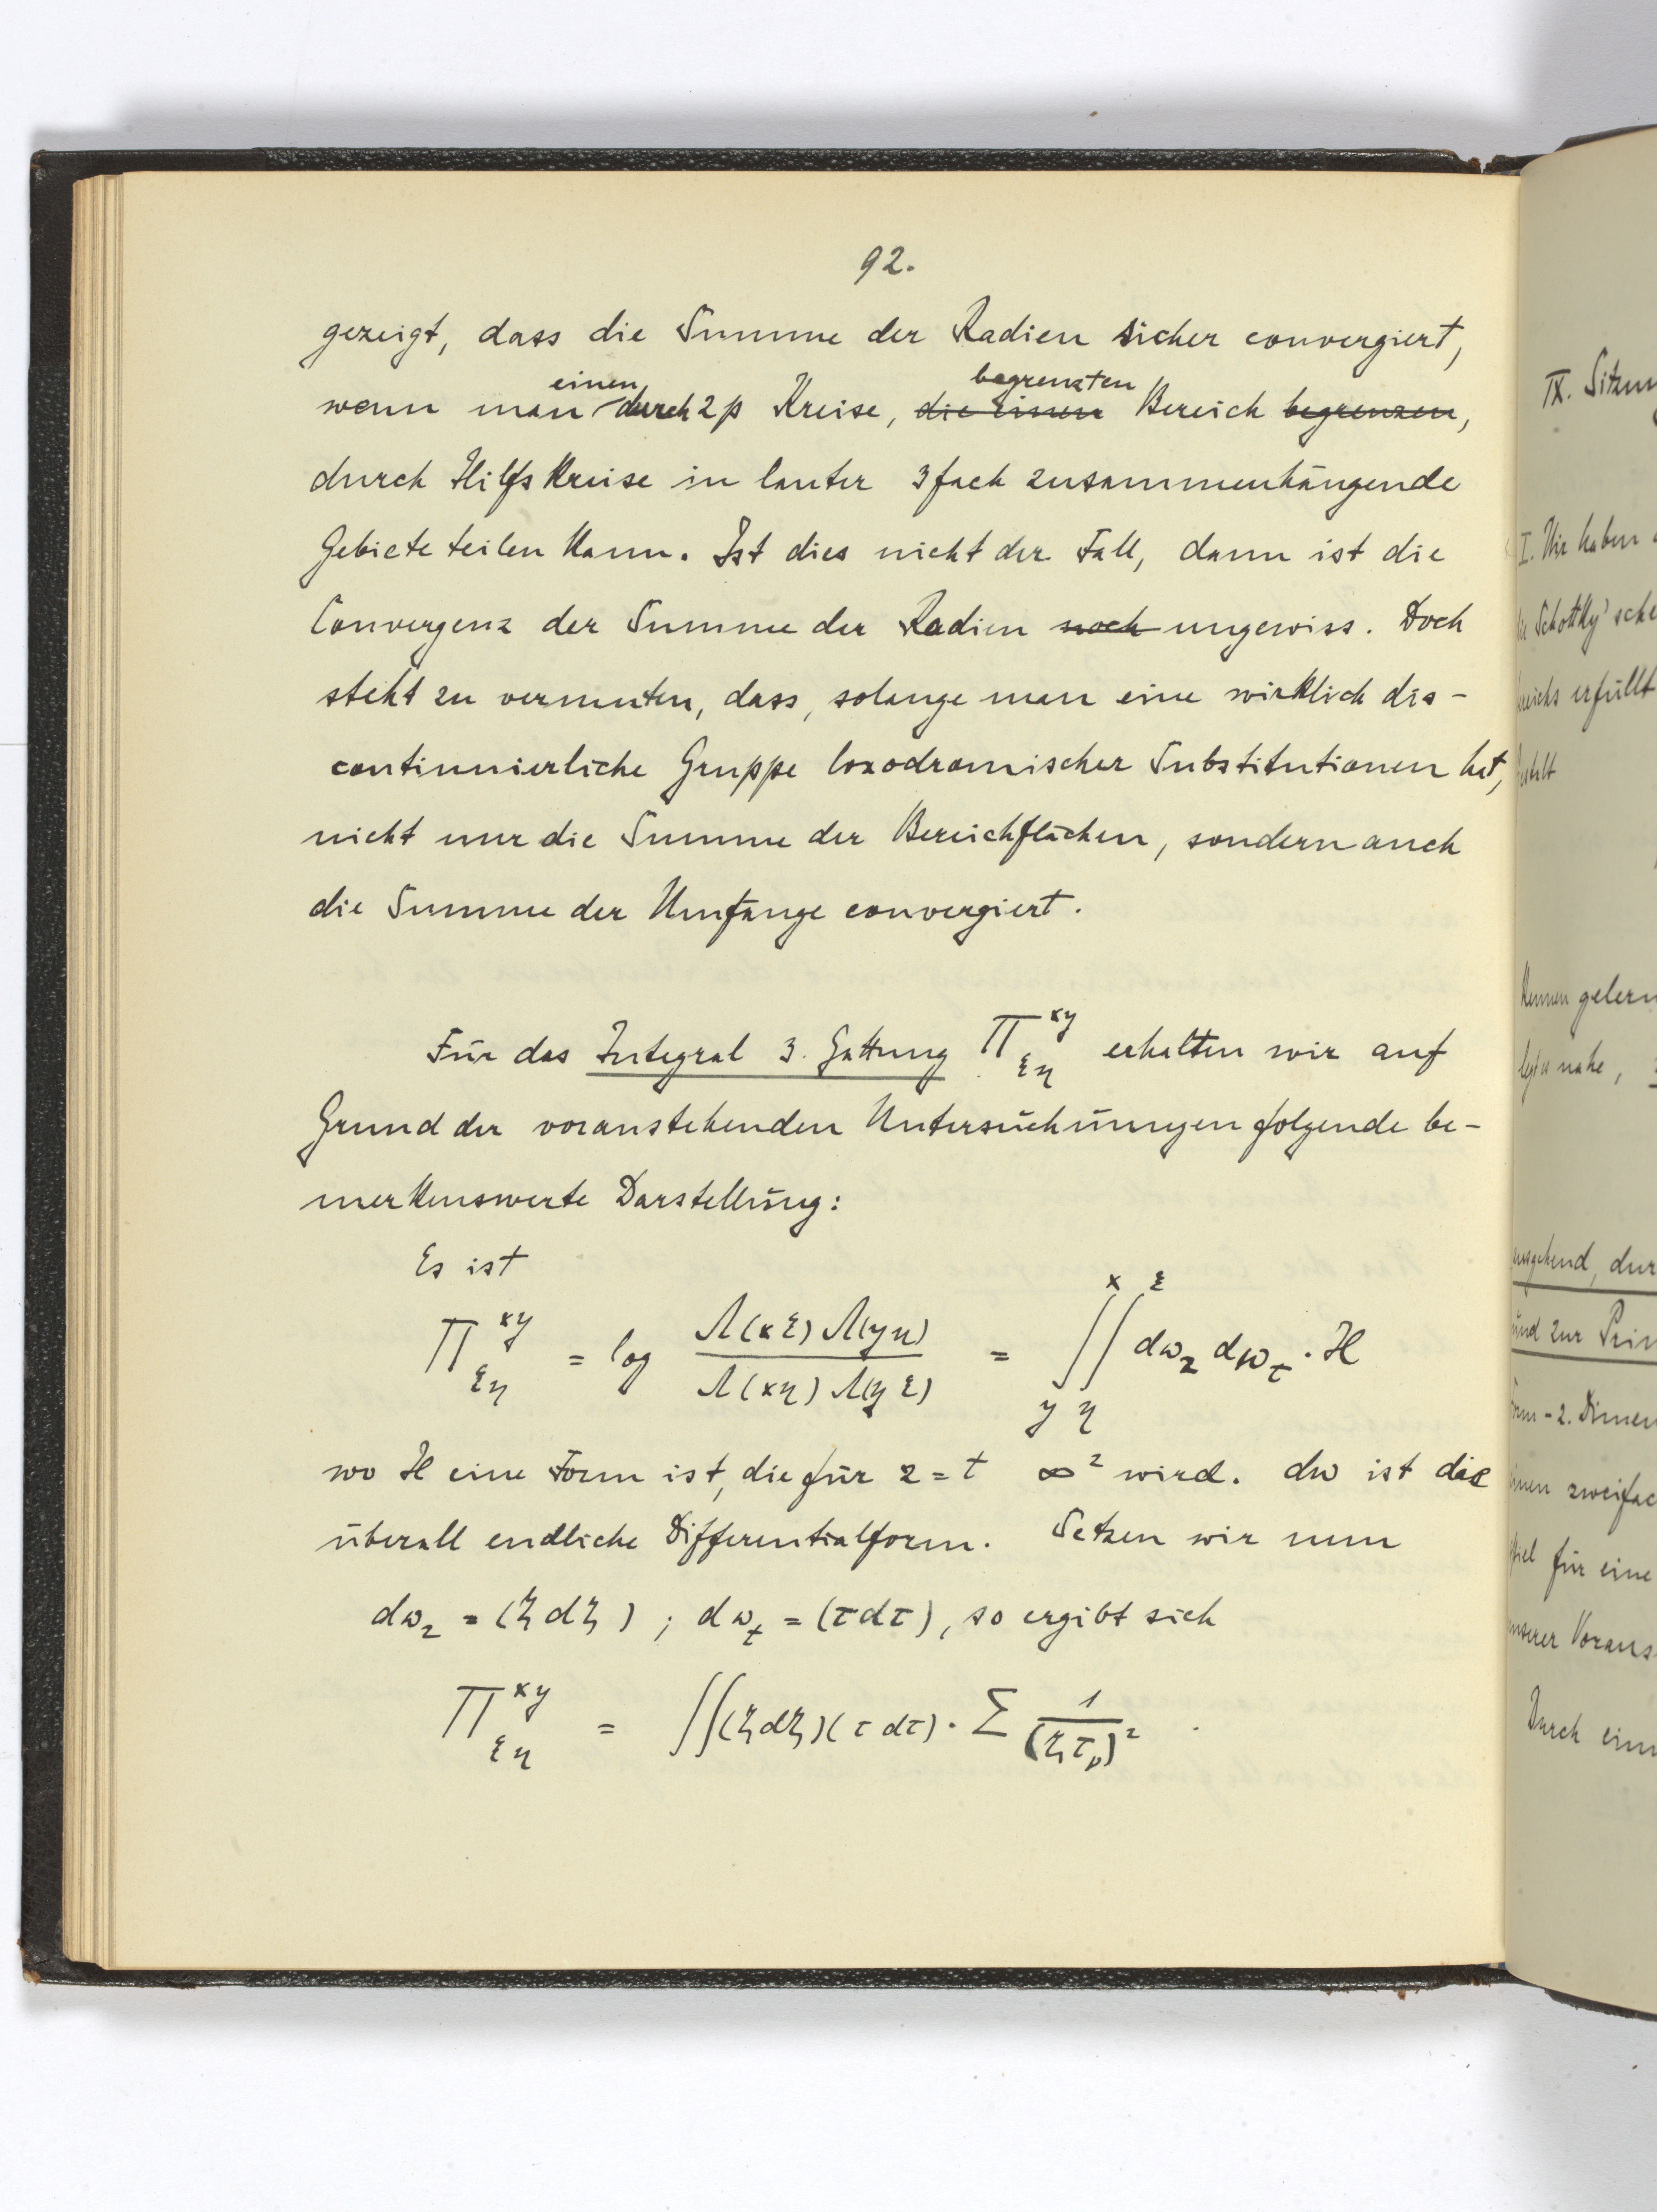 92.
gezeigt, dass die Summe der Radien sicher convergiert,
einen begrenzten
wenn man durch 2p Kreise, die einen Bereich begrenzen,
durch Hilfskreise in lauter 3fach zusammenhängende
Gebiete teilen kann. Ist dies nicht der Fall, dann ist die
Convergenz der Summe der Radien noch ungewiss. Doch
steht zu vermuten, dass, solange man eine wirklich dis-
continuierliche Gruppe loxodromischer Substitutionen hat,
nicht nur die Summe der Bereichflächen, sondern auch
die Summe der Umfänge convergiert.
Für das Integral 3. Gattung Π^{xy}_{ξη} erhalten wir auf
Grund der voranstehenden Untersuchungen folgende be-
merkenswerte Darstellung:
Es ist
Π^{xy}_{ξη} = log Λ(xξ) Λ(yη) / Λ(xη) Λ(yξ) = ∫_y^x ∫_η^ξ dω_z dω_t · H
wo H eine Form ist, die für z = t ∞² wird. dω ist die
überall endliche Differentialform. Setzen wir nun
dω_z = (ζ dζ) ; dω_t = (τ dτ), so ergibt sich
Π^{xy}_{ξη} = ∫∫ (ζ dζ)(τ dτ) · Σ 1/(ζ τ_ν)²
IX.
I. Wir haben
erfüllt
gelern
nahe,
dur
und zur Prin
2. Dimen
zweifac
für eine
unserer Voraus
Durch ein